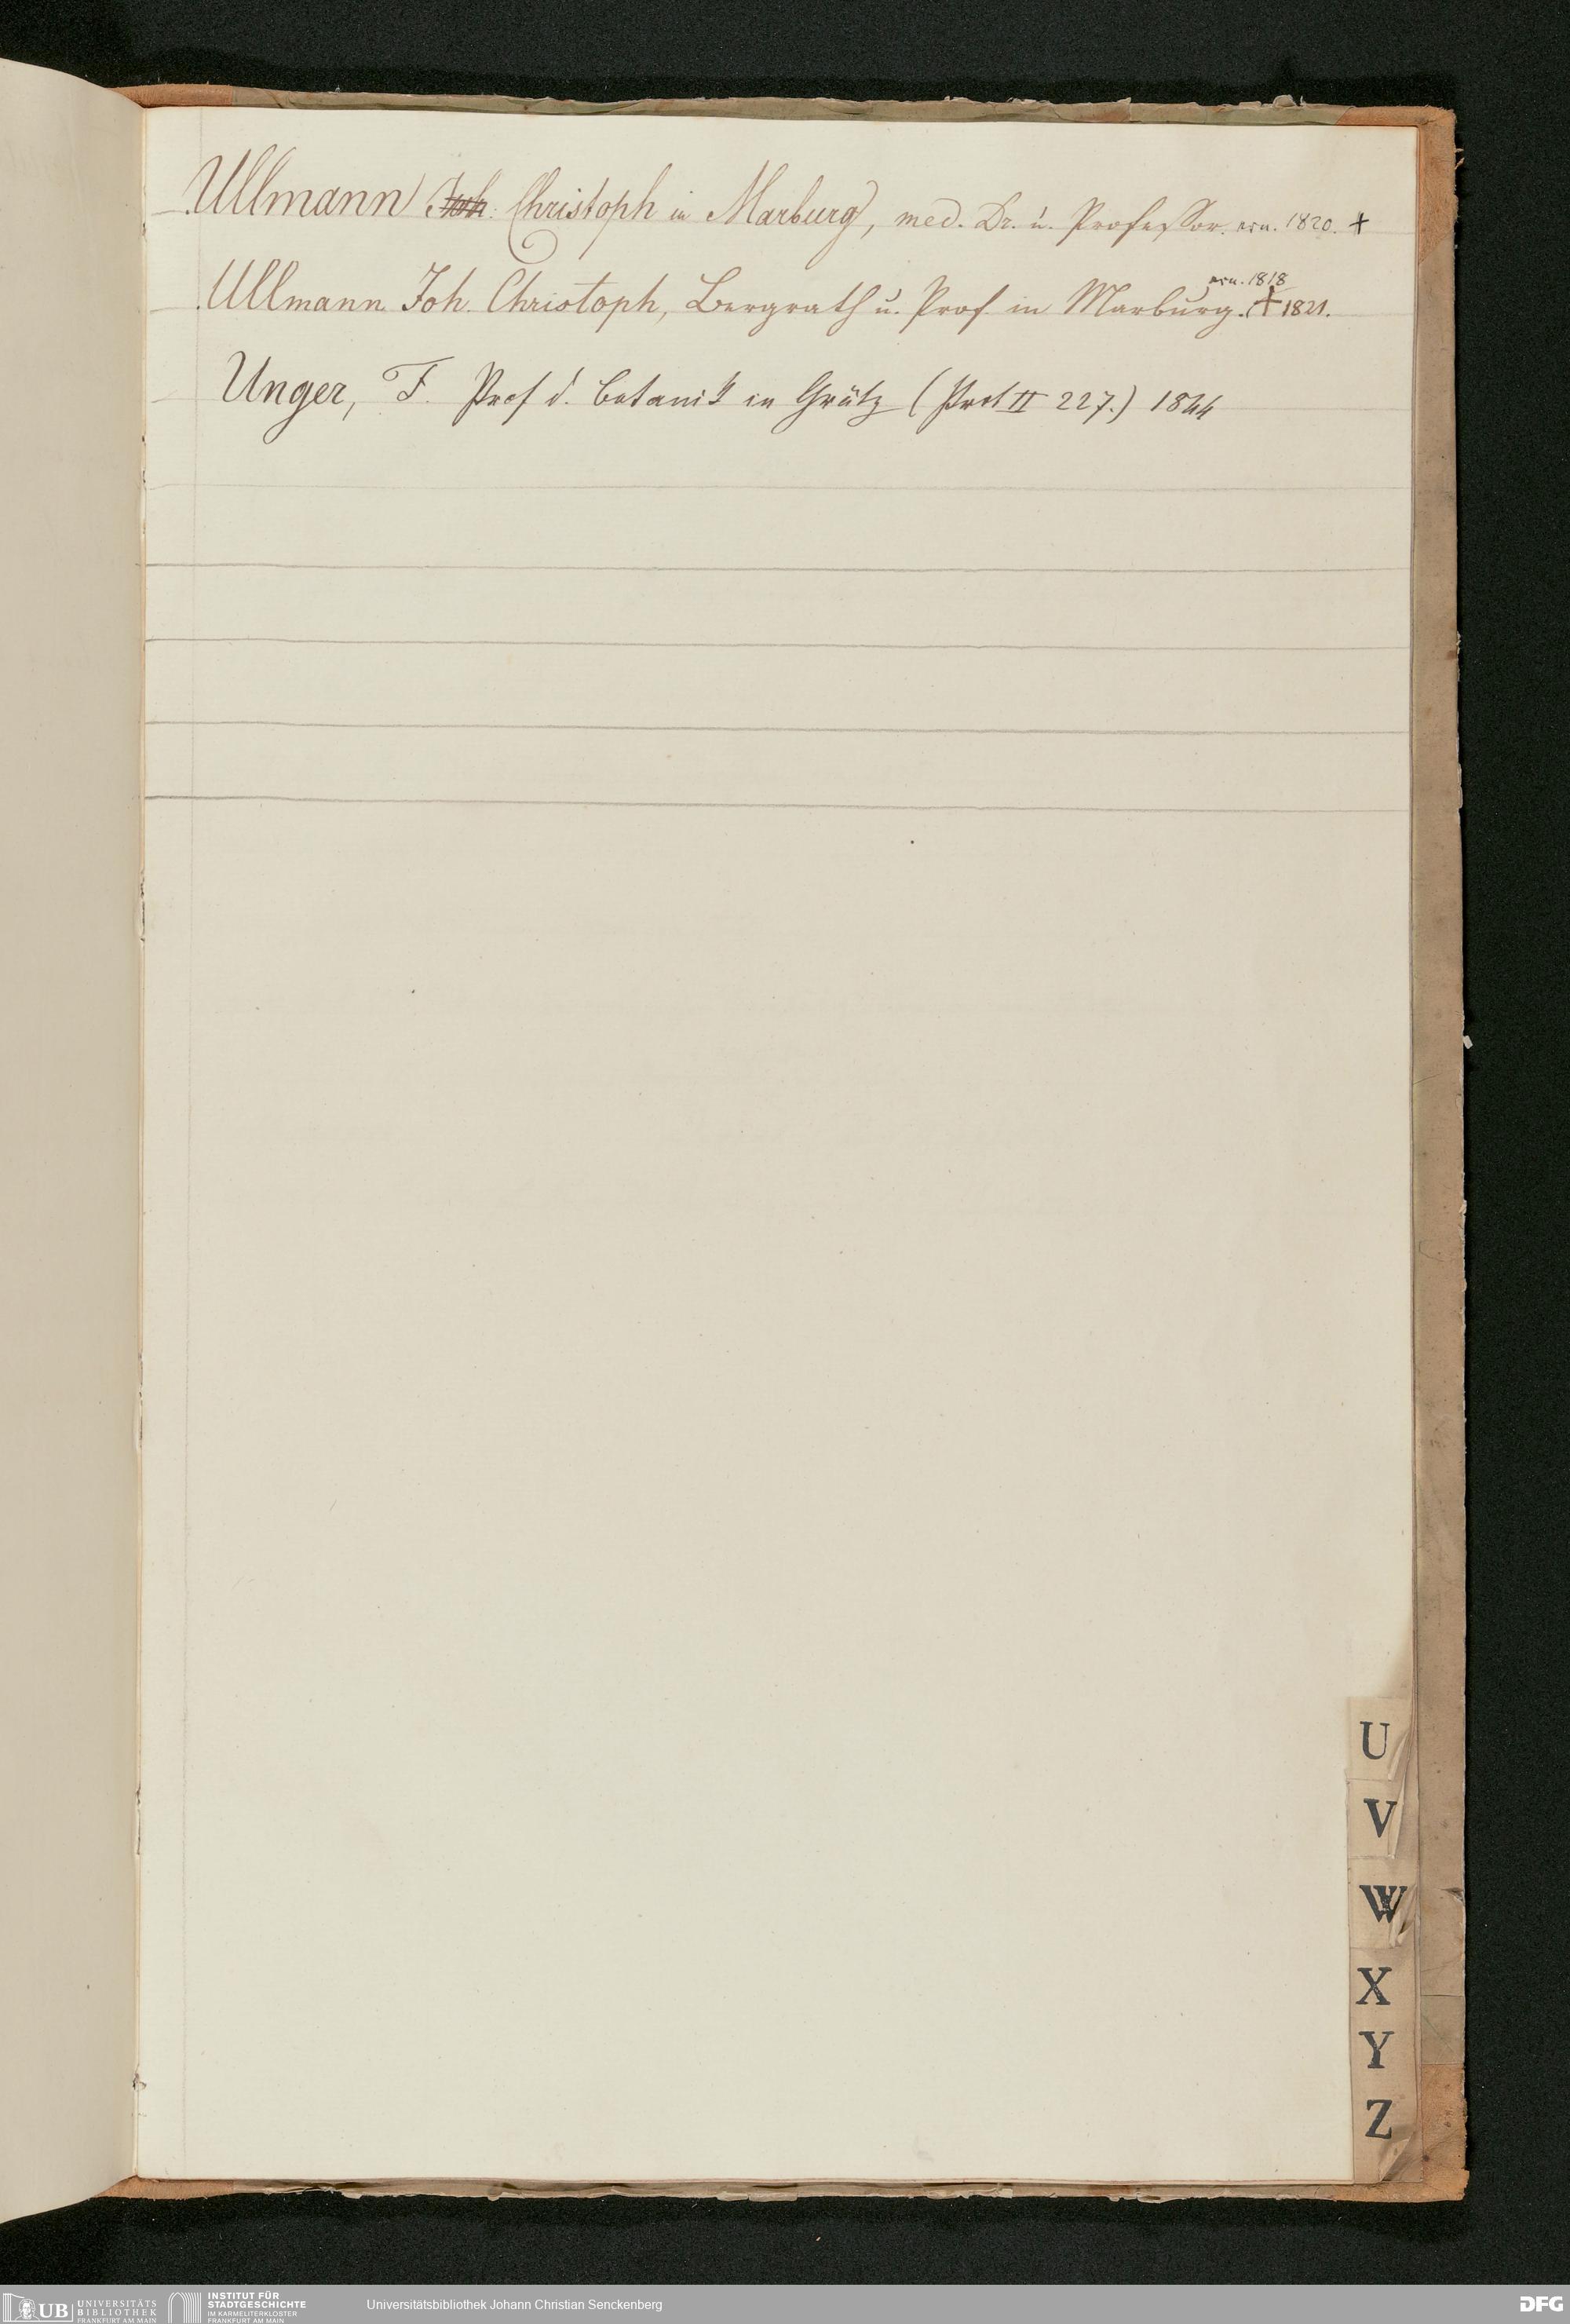 Ullmann Joh. Christoph in Marburg, med. Dr. u. Professor. ern. 1820. †
Ullmann Joh. Christoph, Bergrath u. Prof. in Marburg. ern. 1818 † 1821.
Unger, F. Prof d. Botanik in Grätz (Prot II 227.) 1844
U
V
W
X
Y
Z
UB UNIVERSITÄTS BIBLIOTHEK FRANKFURT AM MAIN
INSTITUT FÜR STADTGESCHICHTE IM KARMELITERKLOSTER FRANKFURT AM MAIN
Universitätsbibliothek Johann Christian Senckenberg
DFG